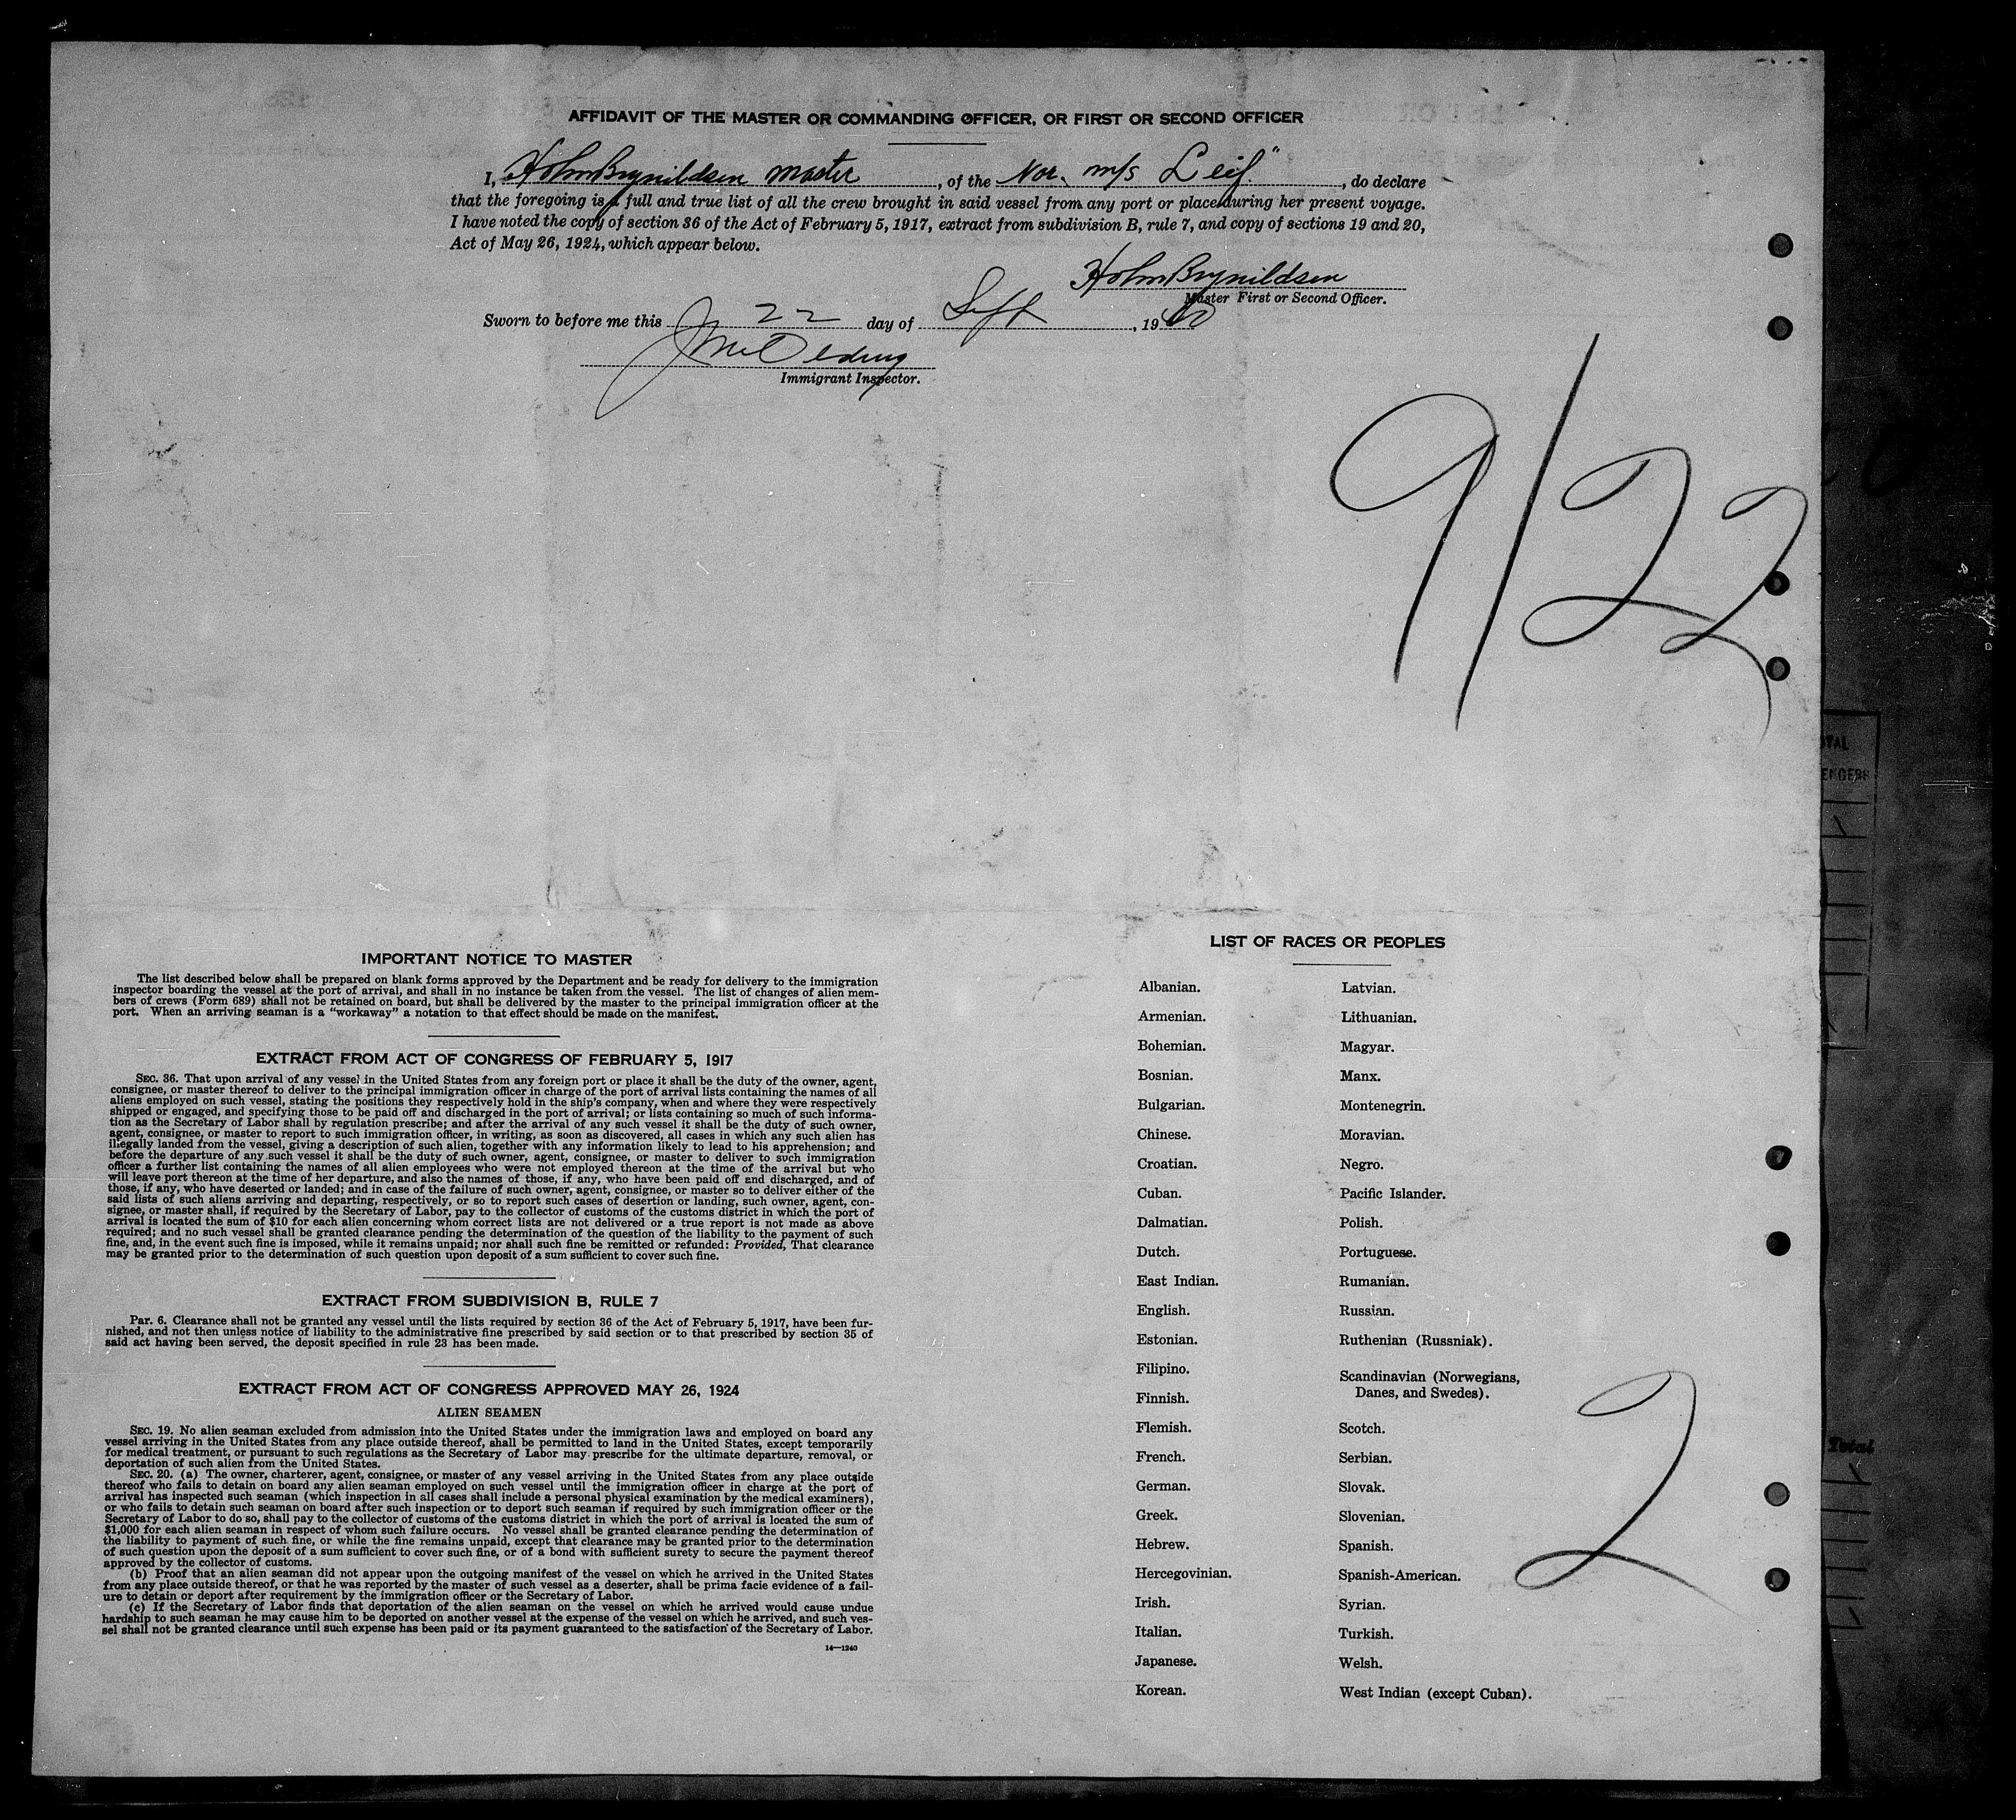 AFFIDAVIT OF THE MASTER OR COMMANDING OFFICER, OR FIRST OR SECOND OFFICER
I, Holm Brynildsen Master, of the Nor. m/s Leif", do declare
that the foregoing is a full and true list of all the crew brought in said vessel from any port or place during her present voyage.
I have noted the copy of section 36 of the Act of February 5, 1917, extract from subdivision B, rule 7, and copy of sections 19 and 20,
Act of May 26, 1924, which appear below.
Holm Brynildsen
Master First or Second Officer.
Sworn to before me this 22 day of Sept, 1940
Immigrant Inspector.
9/22
IMPORTANT NOTICE TO MASTER
The list described below shall be prepared on blank forms approved by the Department and be ready for delivery to the immigration
inspector boarding the vessel at the port of arrival, and shall in no instance be taken from the vessel. The list of changes of alien mem-
bers of crews (Form 689) shall not be retained on board, but shall be delivered by the master to the principal immigration officer at the
port. When an arriving seaman is a "workaway" a notation to that effect should be made on the manifest.
EXTRACT FROM ACT OF CONGRESS OF FEBRUARY 5, 1917
SEC. 36. That upon arrival of any vessel in the United States from any foreign port or place it shall be the duty of the owner, agent,
consignee, or master thereof to deliver to the principal immigration officer in charge of the port of arrival lists containing the names of all
aliens employed on such vessel, stating the positions they respectively hold in the ship's company, when and where they were respectively
shipped or engaged, and specifying those to be paid off and discharged in the port of arrival; or lists containing so much of such informa-
tion as the Secretary of Labor shall by regulation prescribe; and after the arrival of any such vessel it shall be the duty of such owner,
agent, consignee, or master to report to such immigration officer, in writing, as soon as discovered, all cases in which any such alien has
illegally landed from the vessel, giving a description of such alien, together with any information likely to lead to his apprehension; and
before the departure of any such vessel it shall be the duty of such owner, agent, consignee, or master to deliver to such immigration
officer a further list containing the names of all alien employees who were not employed thereon at the time of the arrival but who
will leave port thereon at the time of her departure, and also the names of those, if any, who have been paid off and discharged, and of
those, if any, who have deserted or landed; and in case of the failure of such owner, agent, consignee, or master so to deliver either of the
said lists of such aliens arriving and departing, respectively, or so to report such cases of desertion or landing, such owner, agent, con-
signee, or master shall, if required by the Secretary of Labor, pay to the collector of customs of the customs district in which the port of
arrival is located the sum of $10 for each alien concerning whom correct lists are not delivered or a true report is not made as above
required; and no such vessel shall be granted clearance pending the determination of the question of the liability to the payment of such
fine, and, in the event such fine is imposed, while it remains unpaid; nor shall such fine be remitted or refunded: Provided, That clearance
may be granted prior to the determination of such question upon deposit of a sum sufficient to cover such fine.
EXTRACT FROM SUBDIVISION B, RULE 7
Par. 6. Clearance shall not be granted any vessel until the lists required by section 36 of the Act of February 5, 1917, have been fur-
nished, and not then unless notice of liability to the administrative fine prescribed by said section or to that prescribed by section 35 of
said act having been served, the deposit specified in rule 23 has been made.
EXTRACT FROM ACT OF CONGRESS APPROVED MAY 26, 1924
ALIEN SEAMEN
SEC. 19. No alien seaman excluded from admission into the United States under the immigration laws and employed on board any
vessel arriving in the United States from any place outside thereof, shall be permitted to land in the United States, except temporarily
for medical treatment, or pursuant to such regulations as the Secretary of Labor may prescribe for the ultimate departure, removal, or
deportation of such alien from the United States.
SEC. 20. (a) The owner, charterer, agent, consignee, or master of any vessel arriving in the United States from any place outside
thereof who fails to detain on board any alien seaman employed on such vessel until the immigration officer in charge at the port of
arrival has inspected such seaman (which inspection in all cases shall include a personal physical examination by the medical examiners),
or who fails to detain such seaman on board after such inspection or to deport such seaman if required by such immigration officer or the
Secretary of Labor to do so, shall pay to the collector of customs of the customs district in which the port of arrival is located the sum of
$1,000 for each alien seaman in respect of whom such failure occurs. No vessel shall be granted clearance pending the determination of
the liability to payment of such fine, or while the fine remains unpaid, except that clearance may be granted prior to the determination
of such question upon the deposit of a sum sufficient to cover such fine, or of a bond with sufficient surety to secure the payment thereof
approved by the collector of customs.
(b) Proof that an alien seaman did not appear upon the outgoing manifest of the vessel on which he arrived in the United States
from any place outside thereof, or that he was reported by the master of such vessel as a deserter, shall be prima facie evidence of a fail-
ure to detain or deport after requirement by the immigration officer or the Secretary of Labor.
(c) If the Secretary of Labor finds that deportation of the alien seaman on the vessel on which he arrived would cause undue
hardship to such seaman he may cause him to be deported on another vessel at the expense of the vessel on which he arrived, and such ves-
sel shall not be granted clearance until such expense has been paid or its payment guaranteed to the satisfaction of the Secretary of Labor.
14—1240
LIST OF RACES OR PEOPLES
Albanian.
Armenian.
Bohemian.
Bosnian.
Bulgarian.
Chinese.
Croatian.
Cuban.
Dalmatian.
Dutch.
East Indian.
English.
Estonian.
Filipino.
Finnish.
Flemish.
French.
German.
Greek.
Hebrew.
Hercegovinian.
Irish.
Italian.
Japanese.
Korean.
Latvian.
Lithuanian.
Magyar.
Manx.
Montenegrin.
Moravian.
Negro.
Pacific Islander.
Polish.
Portuguese.
Rumanian.
Russian.
Ruthenian (Russniak).
Scandinavian (Norwegians,
Danes, and Swedes).
Scotch.
Serbian.
Slovak.
Slovenian.
Spanish.
Spanish-American.
Syrian.
Turkish.
Welsh.
West Indian (except Cuban).
2
Total